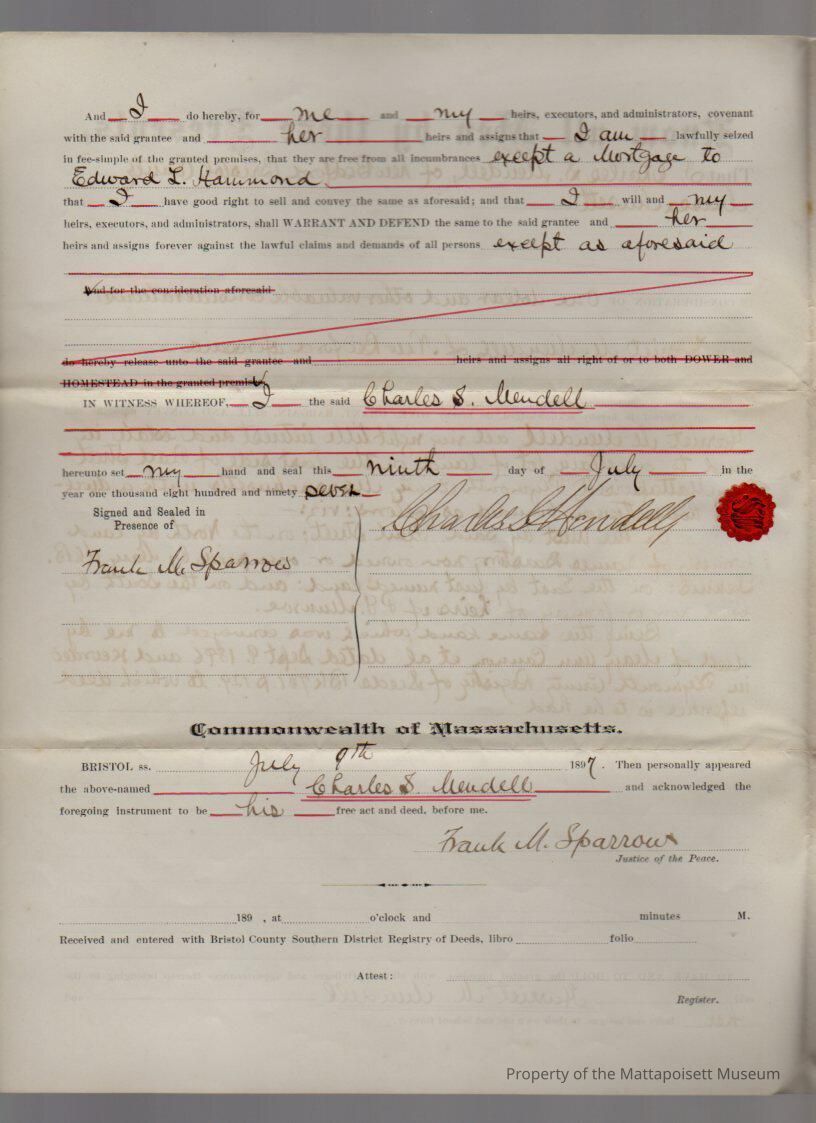 And I do hereby, for me and my heirs, executors, and administrators, covenant
with the said grantee and her heirs and assigns that I am lawfully seized
in fee-simple of the granted premises, that they are free from all incumbrances except a Mortgage to
Edward L. Hammond
that I have good right to sell and convey the same as aforesaid; and that I will and my
heirs, executors, and administrators, shall WARRANT AND DEFEND the same to the said grantee and her
heirs and assigns forever against the lawful claims and demands of all persons except as aforesaid
And for the consideration aforesaid
do hereby release unto the said grantee and heirs and assigns all right of or to both DOWER and
HOMESTEAD in the granted premises
IN WITNESS WHEREOF, I the said Charles S. Mendell
hereunto set my hand and seal this ninth day of July in the
year one thousand eight hundred and ninety seven
Signed and Sealed in
Presence of
Charles S Mendell
Frank M. Sparrow
Commonwealth of Massachusetts.
BRISTOL ss. July 9th 1897. Then personally appeared
the above-named Charles S. Mendell and acknowledged the
foregoing instrument to be his free act and deed, before me.
Frank M. Sparrow
Justice of the Peace.
189 , at o'clock and minutes M.
Received and entered with Bristol County Southern District Registry of Deeds, libro folio
Attest:
Register.
Property of the Mattapoisett Museum